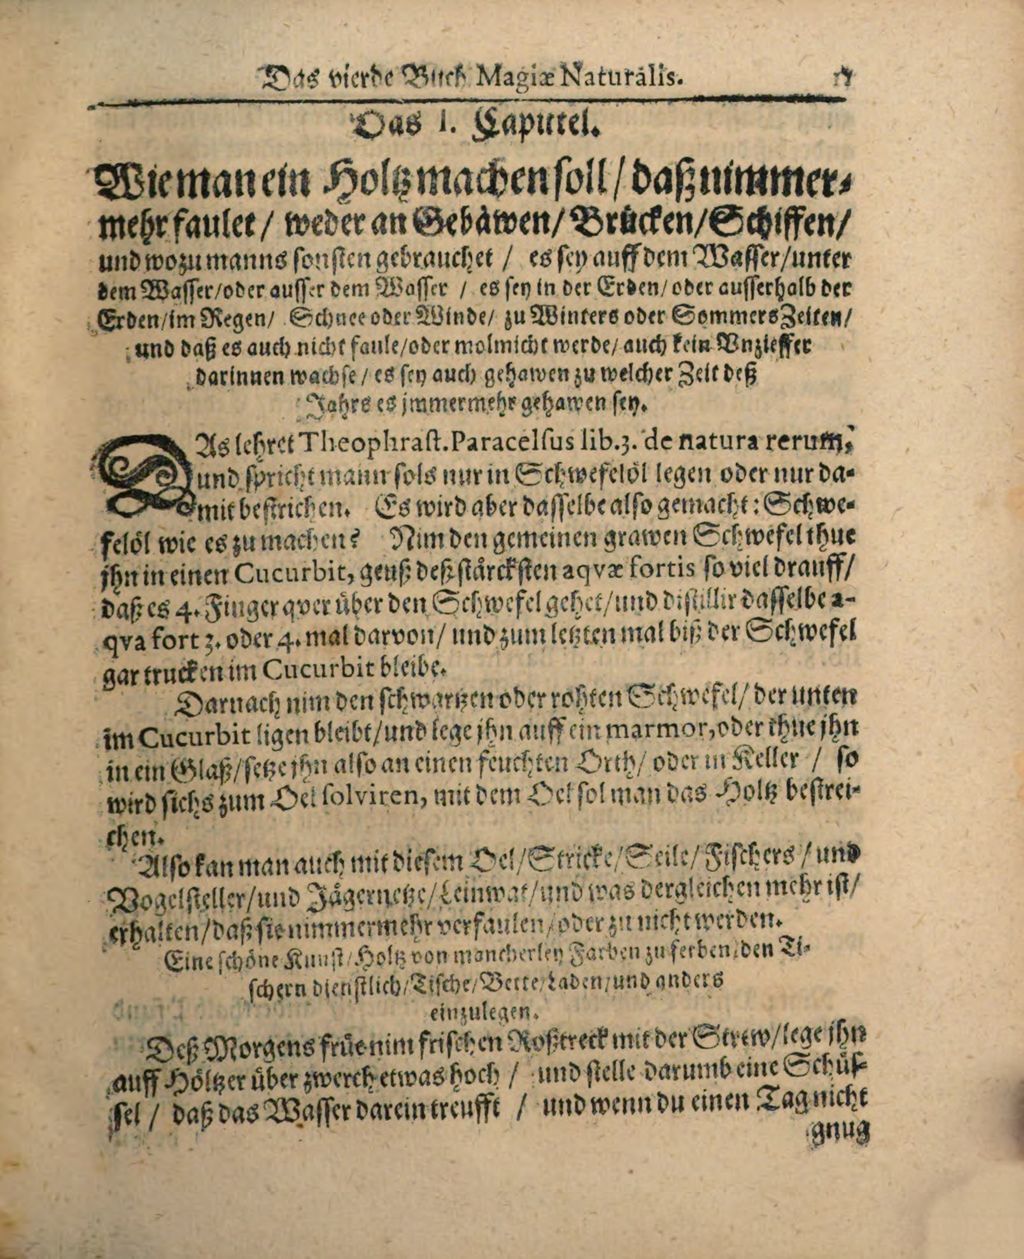 Das vierde Buch Magiæ Naturalis.
Das 1. Capittel.
Wie man ein Holtz machen soll / daß nimmer⸗
mehr faulet / weder an Gebäwen / Brücken / Schiffen /
und wozu manns sonsten gebrauchet / es sey auff dem Wasser / unter
dem Wasser / oder ausser dem Wasser / es sey in der Erden / oder ausserhalb der
Erden / im Regen / Schnee oder Winde / zu Winters oder Sommers Zeiten /
und daß es auch nicht faule / oder molmicht werde / auch kein Vnzieffer
darinnen wachse / es sey auch gehawen zu welcher Zeit deß
Jahrs es jmmermehr gehawen sey.
DAs lehret Theophrast. Paracelsus lib. 3. de natura rerum,
und spricht mann sols nur in Schwefelöl legen oder nur da⸗
mit bestrichen. Es wird aber dasselbe also gemacht: Schwe⸗
felöl wie es zu machen? Nim den gemeinen grawen Schwefel thue
jhn in einen Cucurbit, geuß deß stärcksten aqvæ fortis so viel drauff /
daß es 4. Finger qver über den Schwefel gehet / und distillir dasselbe a-
qva fort 3. oder 4. mal darvon / und zum letzten mal biß der Schwefel
gar trucken im Cucurbit bleibe.
Darnach nim den schwartzen oder rohten Schwefel / der unten
im Cucurbit ligen bleibt / und lege jhn auff ein marmor, oder thue jhn
in ein Glaß / setze jhn also an einen feuchten Orth / oder in Keller / so
wird sichs zum Oel solviren, mit dem Oel sol man das Holtz bestrei⸗
chen.
Also kan man auch mit diesem Oel / Stricke / Seile / Fischers / und
Vogelsteller / und Jägernetze / Leinwat / und was dergleichen mehr ist /
erhalten / daß sie nimmermehr verfaulen / oder zu nicht werden.
Eine schöne Kunst / Holtz von mancherley Farben zu ferben / den Ti⸗
schern dienstlich / Tische / Bette / Laden / und anders
einzulegen.
Deß Morgens früe nim frischen Roßtreck mit der Strew / lege jhn
auff Höltzer über zwerch etwas hoch / und stelle darumb eine Schüs⸗
sel / daß das Wasser darein treufft / und wenn du einen Tag nicht
gnug